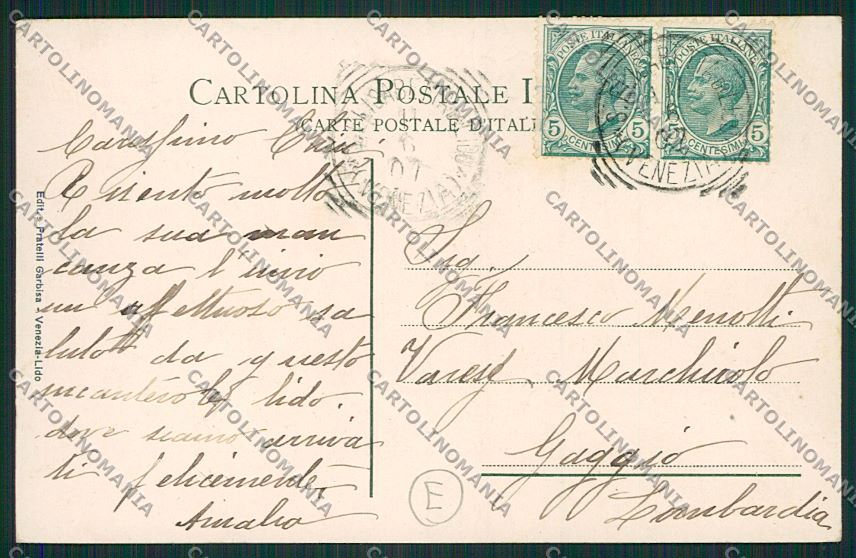 CARTOLINA POSTALE I
CARTE POSTALE D'ITALI
POSTE ITALIANE
5 5
CENTESIMI
POSTE ITALIANE
5 5
CENTESIMI
(VENEZIA)
(VENEZIA)
07
Carissimo
Risento molto
la sua man
canza l'invio
un affettuoso sa
luto da questo
lido.
dove siamo arriva
ti felicemente
Amalia
Sig.
Francesco Menotti
Varese Marchirolo
Gaggio
Lombardia
E
Edit. Fratelli Garbisa - Venezia-Lido
CARTOLINOMANIA